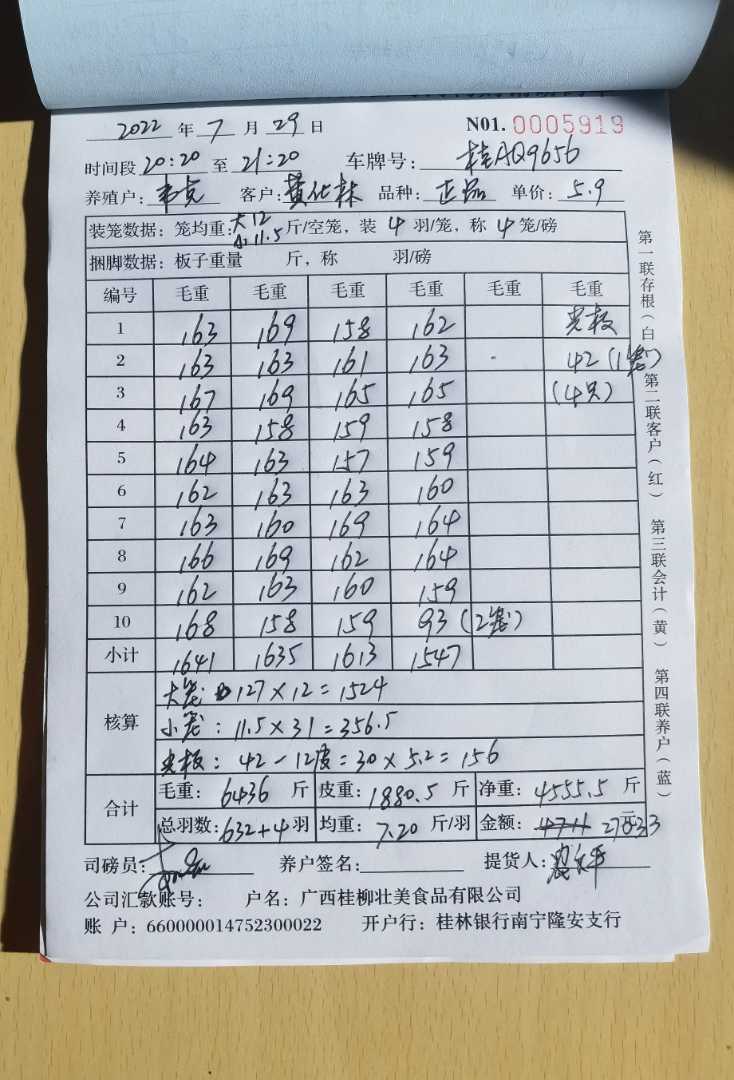 2022 年 7 月 29 日 N01. 0005919
时间段 20:20 至 21:20 车牌号: 桂AQ9656
养殖户: 客户: 黄化林 品种: 正品 单价: 5.9
装笼数据: 笼均重: 大12 小11.5 斤/空笼, 装 4 羽/笼, 称 4 笼/磅
捆脚数据: 板子重量 斤, 称 羽/磅
编号 毛重 毛重 毛重 毛重 毛重 毛重
1 163 169 158 162 光板
2 163 163 161 163 42 (1笼)
3 167 169 165 165 (4只)
4 163 158 159 158
5 164 163 157 159
6 162 163 163 160
7 163 160 169 164
8 166 169 162 164
9 162 163 160 159
10 168 158 159 93 (2笼)
小计 1641 1635 1613 1547
核算
大笼: 127×12=1524
小笼: 11.5×31=356.5
光板: 42-12皮=30×5.2=156
合计
毛重: 6436 斤 皮重: 1880.5 斤 净重: 4555.5 斤
总羽数: 632+4 羽 均重: 7.20 斤/羽 金额: 元
司磅员: 养户签名: 提货人:
公司汇款账号: 户名: 广西桂柳壮美食品有限公司
账 户: 660000014752300022 开户行: 桂林银行南宁隆安支行
第一联存根(白) 第二联客户(红) 第三联会计(黄) 第四联养户(蓝)